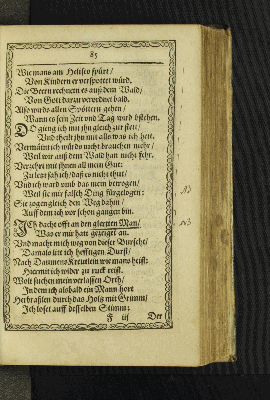 85
Wie mans am Helises spürt/
Von Kindern er verspottet würd.
Die Beern zerrissen es auß dem Wald/
Von Gott darzu verordnet bald.
Also wirds allen Spöttern gehen/
Wann es sein Zeit und Tag wird bstehen.
DO gieng ich mit ihn gleich zur stett/
Und theilt ihn mit alls was ich hett.
Vermaint ich würds nacht brauchen mehr/
Weil wir auß dem Wald han nicht fehr.
Verzehrt mit ihnen all mein Gut:
Zu letst sah ich/ daß es nicht thut/
Und ich ward umb das mein betrogen/
Weil sie mir falsch Ding fürgelogen:
Sie zogen gleich den Weg dahin/
Auff dem ich vor schon gangen bin.
ICh dacht offt an den alten Man/
Was er mir hatt gezeiget an.
Und macht mich weg von dieser Burscht/
Damals litt ich hefftigen Durst/
Nach Daumens Kreutlein wie mans heist:
Hiermit ich wider zu ruck reist.
Wolt suchen mein verlassen Orth/
In dem ich alsbald ein Mann hort
Herbraßlen durch das Holtz mit Grimm/
Ich loset auff desselben Stimm:
F iij Der
NB
NB